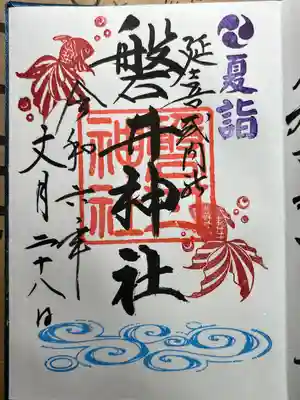 夏詣
延喜式内社
磐井神社
磐井神社
令和六年
文月二十八日